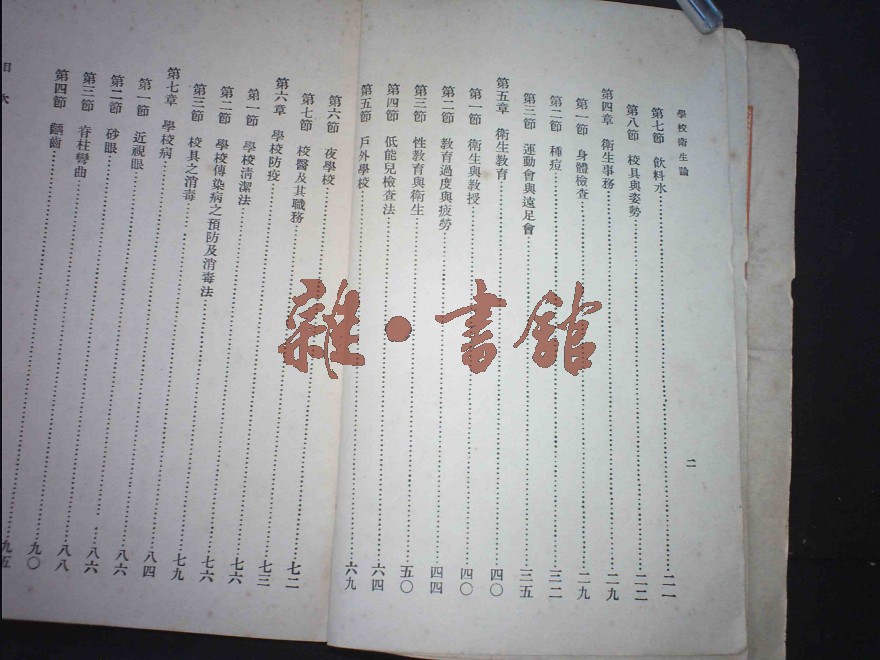 學校衛生論
二
第七節 飲料水……二一
第八節 校具與姿勢……二二
第四章 衛生事務……二九
第一節 身體檢查……二九
第二節 種痘……三二
第三節 運動會與遠足會……三五
第五章 衛生教育……四〇
第一節 衛生與教授……四〇
第二節 教育過度與疲勞……四四
第三節 性教育與衛生……五〇
第四節 低能兒檢查法……六四
第五節 戶外學校……六九
第六節 夜學校……
第七節 校醫及其職務……七二
第六章 學校防疫……七三
第一節 學校清潔法……七六
第二節 學校傳染病之預防及消毒法……七六
第三節 校具之消毒……七九
第七章 學校病……八四
第一節 近視眼……八六
第二節 砂眼……八六
第三節 脊柱彎曲……八八
第四節 齲齒……九〇
九五
目次
雜·書館